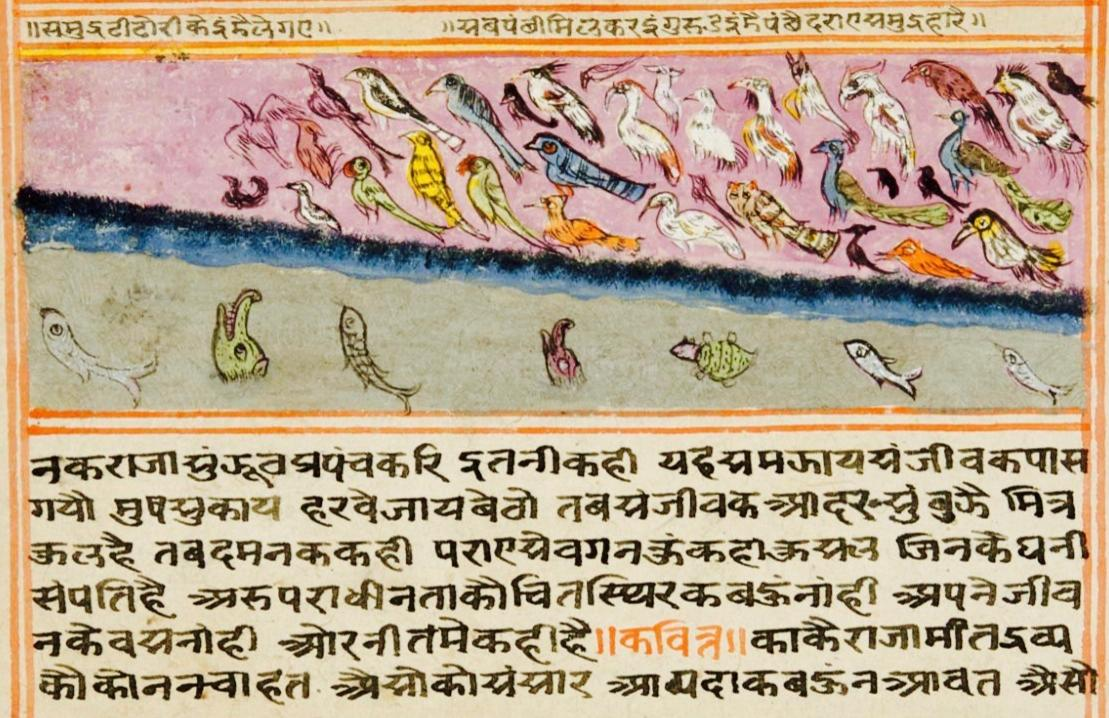 ॥समुद्र टीटोरी के इंडे ले गए॥ ॥सब पंषी मिल कर इंगुरु उ इंडे पंषै दराए समुद्र हारै॥
नक राजा सुं कूव प्रपंच करि इतनी कही यह समझाय संजीवक पास
गयौ मुष सुकाय हरवे जाय बेठो तब संजीवक आदर सुं बुझै मित्र
कुल है तब दमनक कही पराए सेवगन कुं कहा कुसल जिनके धनी
संपति है अरु पराधीनता कौ चित स्थिर कबऊं नांही अपने जीव
न के वस नांही ओर नीत में कही है॥कवित्त॥काकै राजा मीत द्रव्य
कौ को न न चाहत असो को संसार आपदा कबऊं न आवत असो